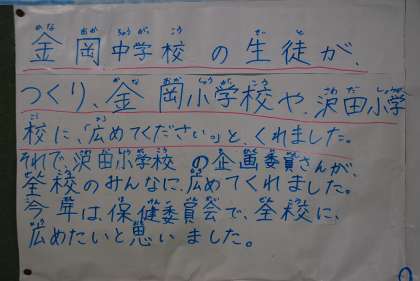 金岡中学校の生徒が、
つくり、金岡小学校や、沢田小学
校に、「広めてください。」と、くれました。
それで、沢田小学校の企画委員さんが、
全校のみんなに、広めてくれました。
今年は、保健委員会で、全校に、
広めたいと思いました。